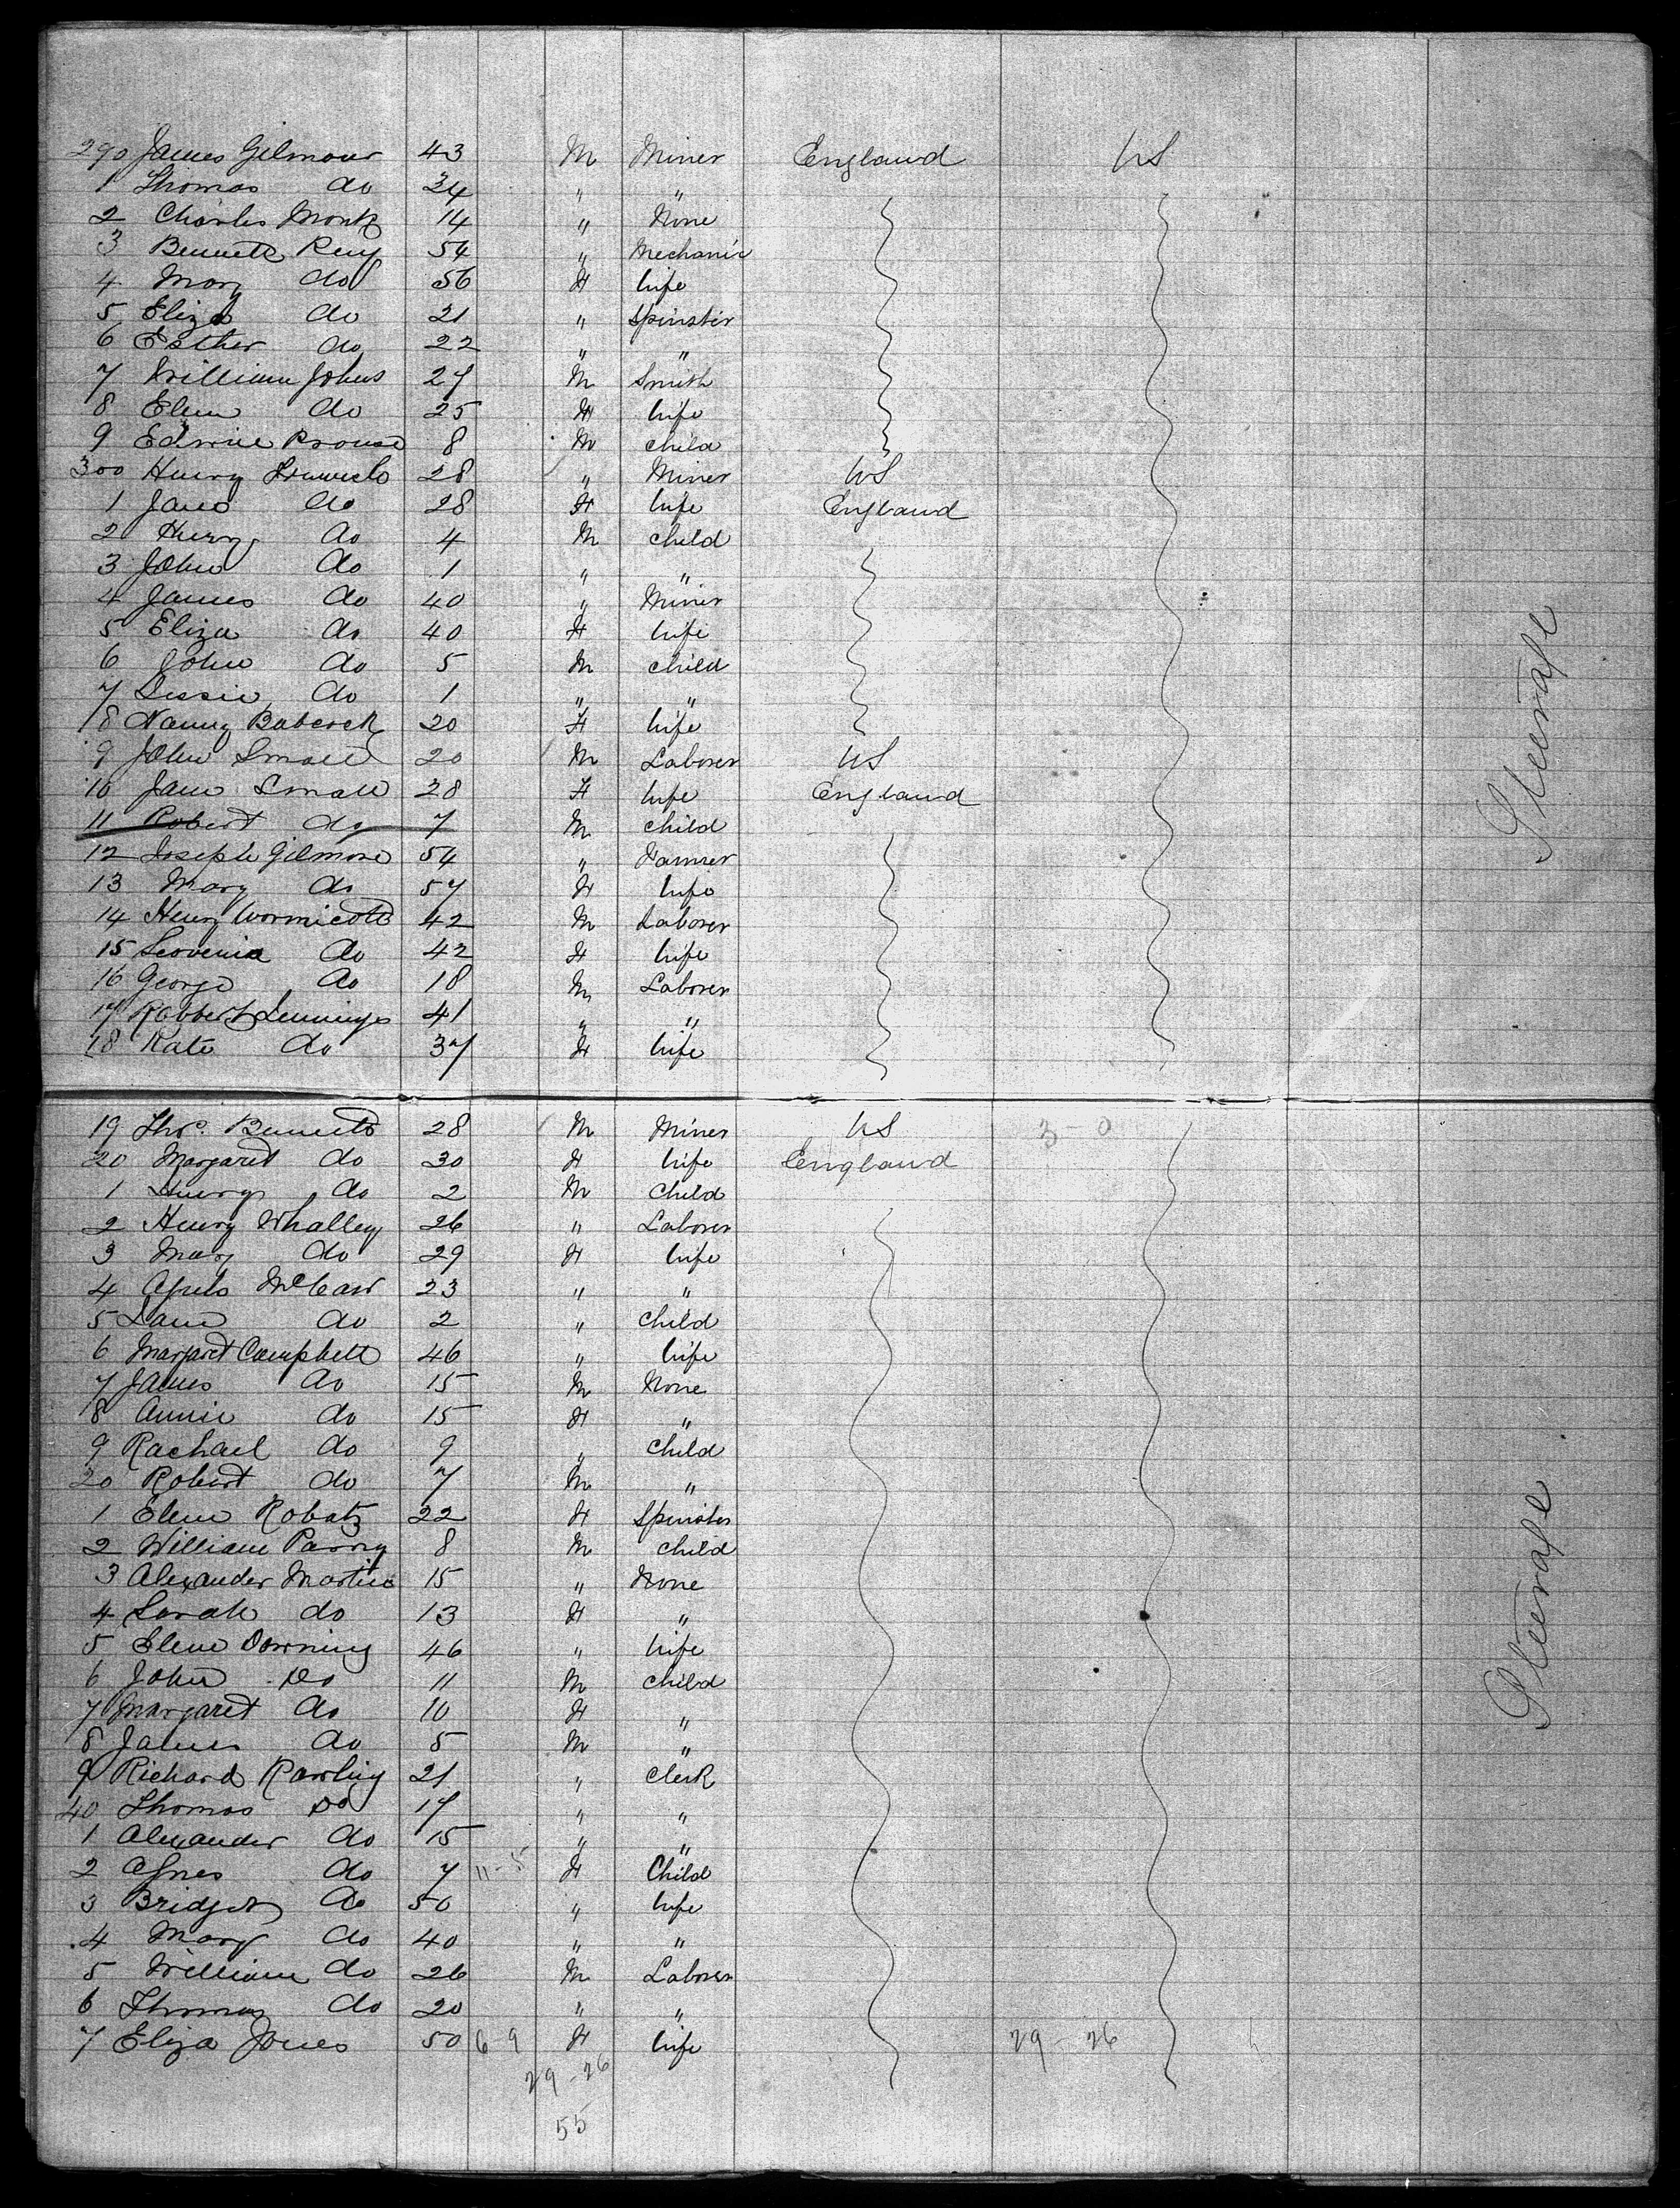 290 James Gilmour 43 M Miner England US
1 Thomas do 34 " "
2 Charles Monk 14 " None
3 Bennett 54 " Mechanic
4 Mary do 56 F Wife
5 Eliza do 21 " Spinster
6 Esther do 22 " "
7 William Johns 27 M Smith
8 Ellen do 25 F Wife
9 Edwin Prouse 8 M child
300 Henry 28 " Miner US
1 Jane do 28 F Wife England
2 Henry do 4 M child
3 John do 1 " "
4 James do 40 " Miner
5 Eliza do 40 F Wife
6 John do 5 M child
7 Lessie do 1 " "
8 Nanny Babcock 20 F Wife
9 John Small 20 M Laborer US
10 Jane Small 28 F Wife England
11 Robert do 7 M child
12 Joseph Gilmore 54 " Farmer
13 Mary do 57 F Wife
14 Henry Wormicott 42 M Laborer
15 do 42 F Wife
16 George do 18 M Laborer
17 Robbert Jennings 41 " "
18 Kate do 37 F Wife
Steerage
19 Thos. Bennett 28 M Miner US 3-0
20 Margaret do 30 F Wife England
1 Henry do 2 M Child
2 Henry Whalley 26 " Laborer
3 Mary do 29 F Wife
4 Agnes 23 " "
5 Jane do 2 " Child
6 Margaret Campbell 46 " Wife
7 James do 15 M None
8 Annie do 15 F "
9 Rachael do 9 " Child
30 Robert do 7 M "
1 Ellen Robats 22 F Spinster
2 William Parry 8 M child
3 Alexander Martin 15 " None
4 Sarah do 13 F "
5 Ellen Downing 46 " Wife
6 John Do 11 M child
7 Margaret do 10 F "
8 James do 5 M "
9 Richard Rawling 21 " Clerk
40 Thomas Do 17 " "
1 Alexander do 15 " "
2 Agnes do 7 11-5 F Child
3 Bridget do 50 " Wife
4 Mary do 40 " "
5 William do 26 M Laborer
6 Thomas do 20 " "
7 Eliza Jones 50 6 9 F Wife 29-26
29-26
55
Steerage